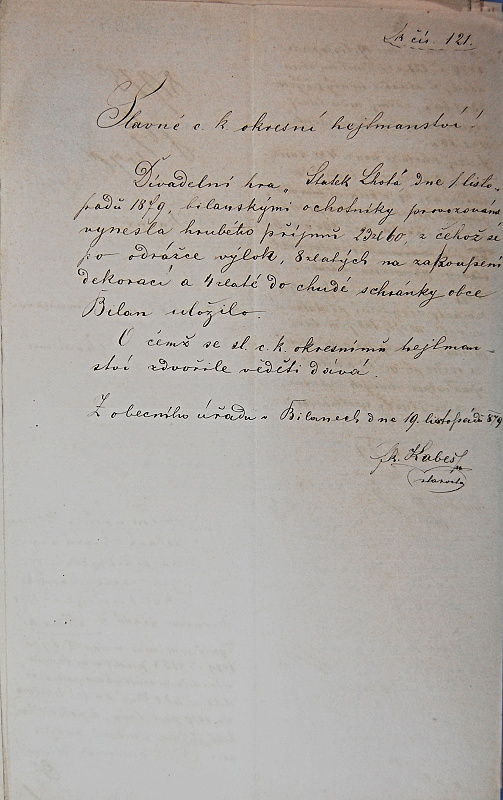 čís. 121.
Slavné c. k. okresní hejtmanství!
Divadelní hra „Statek Lhotá" dne 1. listo-
padu 1879, bilanskými ochotníky provozována
vynesla hrubého příjmu 29 zl 60, z čehož se
po odrážce výloh, 8 zlatých na zakoupení
dekorací a 4 zlaté do chudé schránky obce
Bilan uložilo.
O čemž se sl. c. k. okresnímu hejtman-
ství zdvořile věděti dává.
Z obecního úřadu v Bilanech dne 19. listopadu 879
Fr. Kubeš
starosta